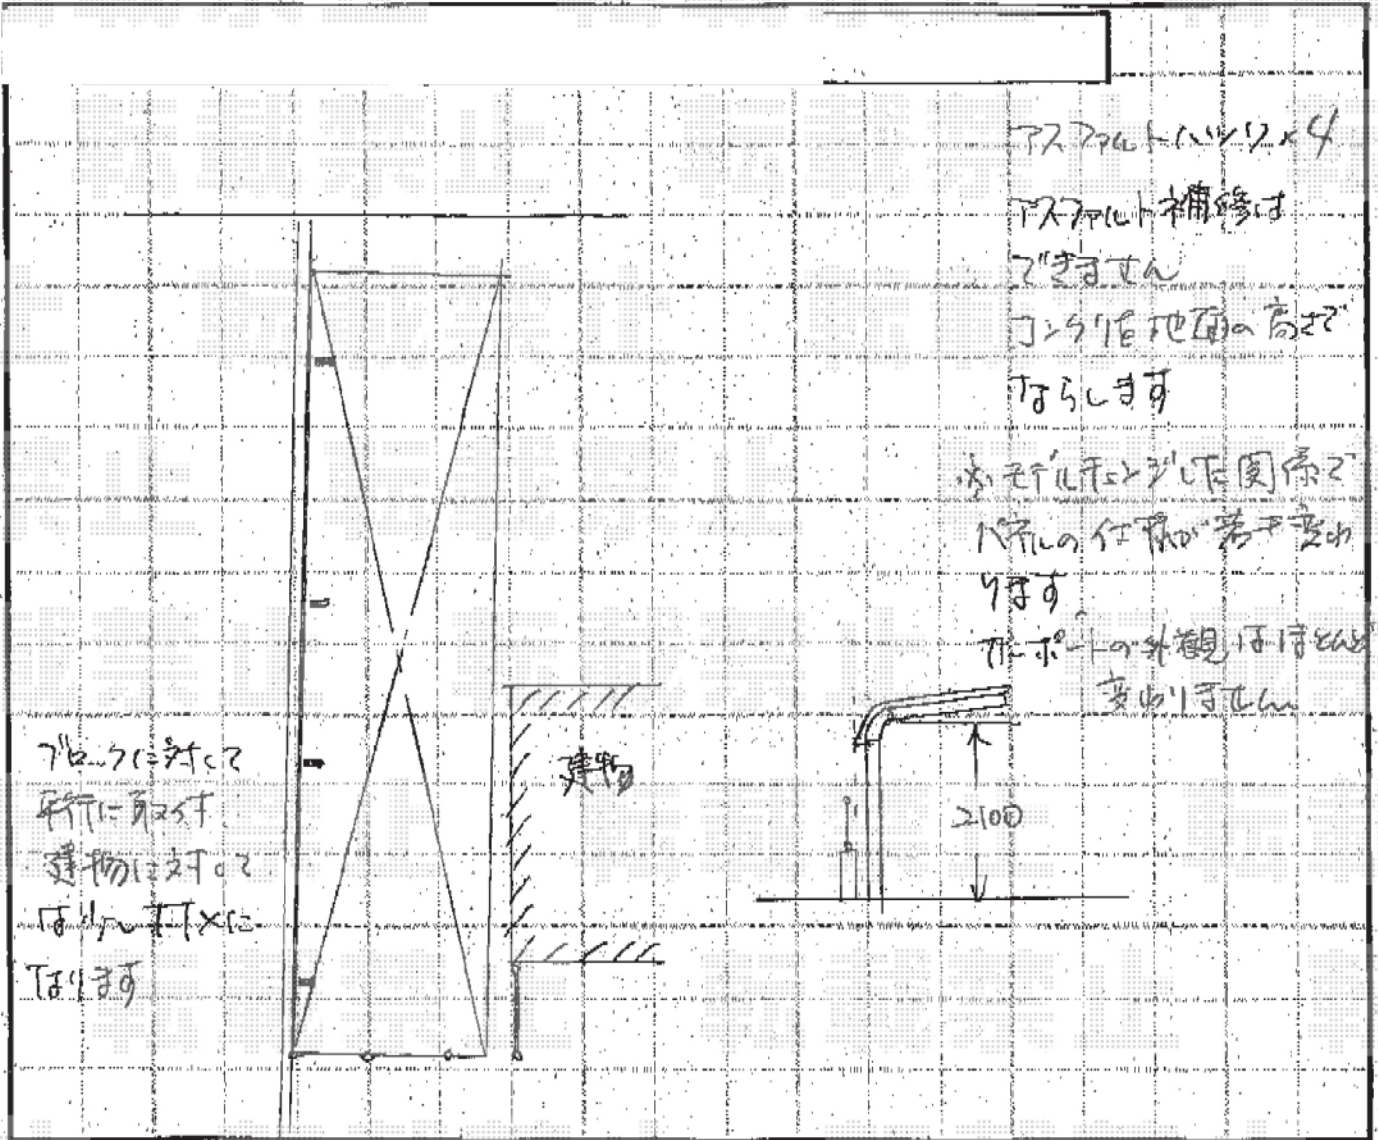 アスファルトハツリ×4
アスファルト補修は
できません
コンクリを地面の高さで
ならします
※モデルチェンジした関係で
パネルの仕様が若干変わ
ります
カーポートの外観はほとんど
変わりません
ブロックに対して
平行に取付
建物に対して
は少しナナメに
なります
建物
2100